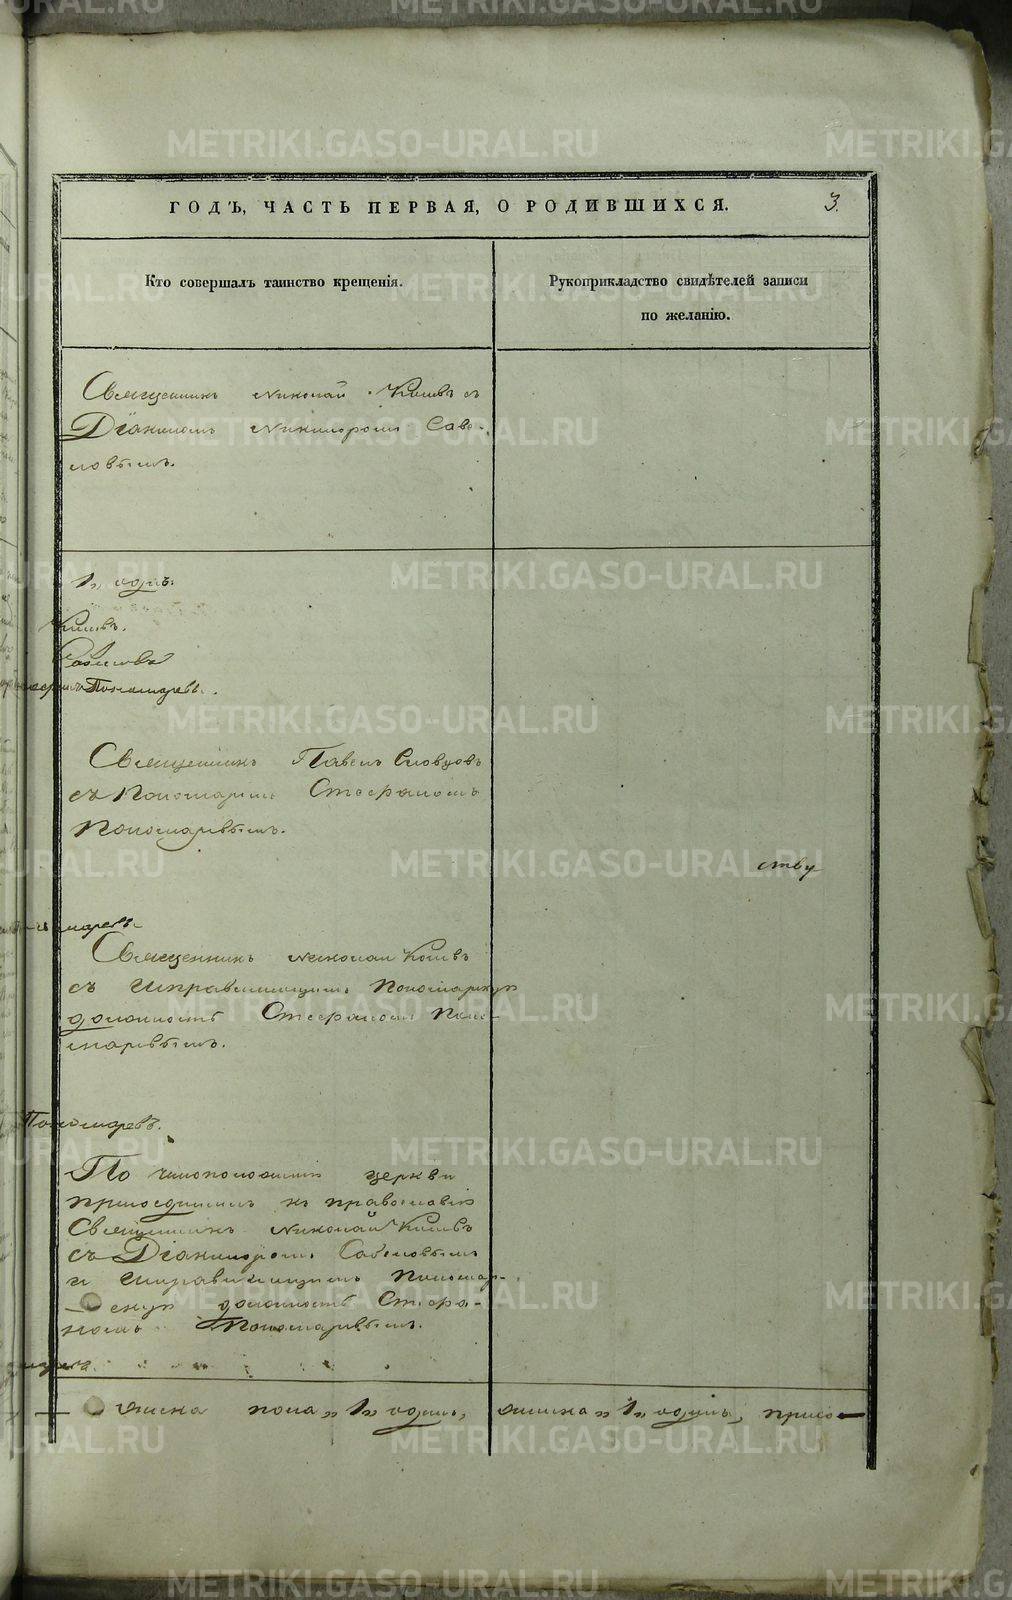 ГОДЪ, ЧАСТЬ ПЕРВАЯ, О РОДИВШИХСЯ.
3.
Кто совершалъ таинство крещенія.
Рукоприкладство свидѣтелей записи
по желанію.
Священникъ Николай съ
Діакономъ Никифоромъ Саве-
ловымъ.
1, одинъ.
Пономаревъ.
Священникъ Павелъ Словцовъ
съ Пономаремъ Стефаномъ
Пономаревымъ.
ству
Священникъ Николай
съ исправляющимъ Пономарскую
должность Стефаномъ Поно-
маревымъ.
Пономаревъ.
По чиноположенію церкви
присоединилъ къ православію
Священникъ Николай
съ Савеловымъ
и исправляющимъ Пономар-
скую должность Стефа-
номъ Пономаревымъ.
пола „1„ одинъ, „1„ одинъ, присо-
METRIKI.GASO-URAL.RU